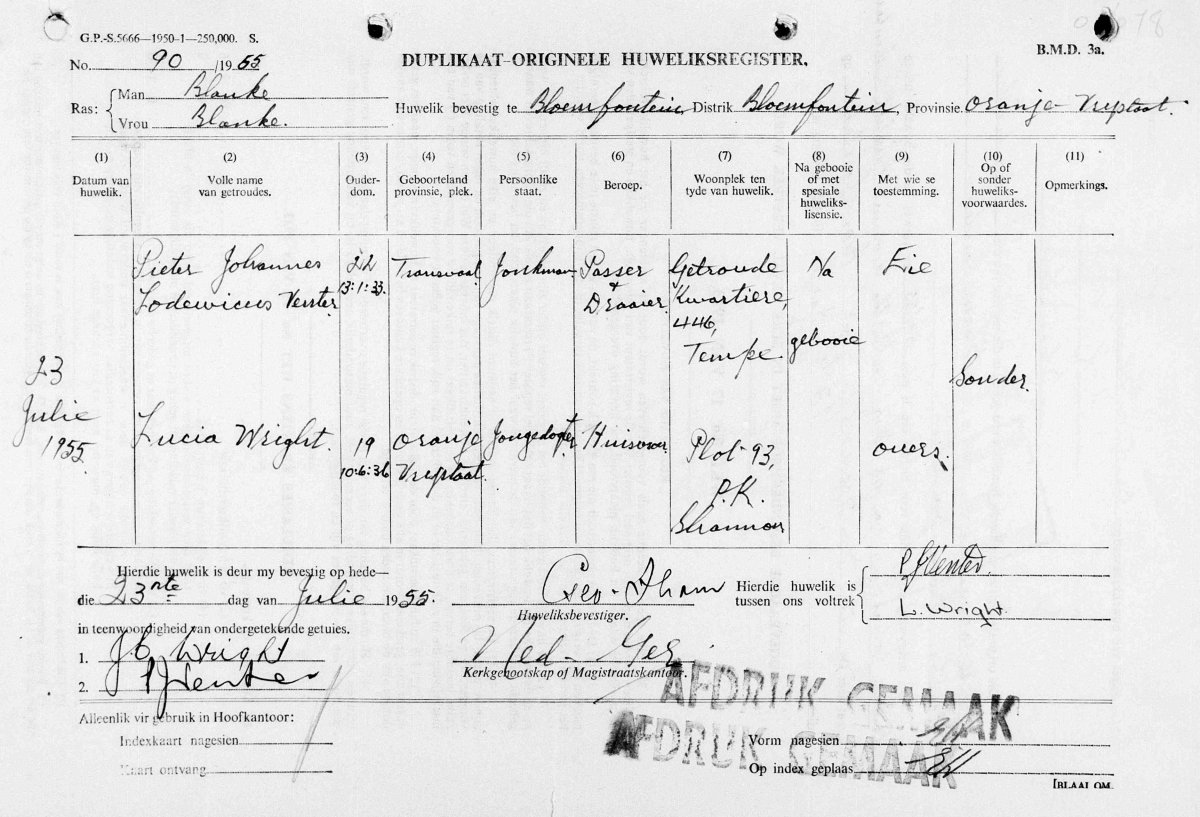 G.P.-S.5666—1950-1—250,000. S.
B.M.D. 3a.
No. 90 /1955
DUPLIKAAT-ORIGINELE HUWELIKSREGISTER.
Ras: Man Blanke
Vrou Blanke.
Huwelik bevestig te Bloemfontein, Distrik Bloemfontein, Provinsie Oranje-Vrystaat.
(1) (2) (3) (4) (5) (6) (7) (8) (9) (10) (11)
Datum van huwelik.
Volle name van getroudes.
Ouder-dom.
Geboorteland provinsie, plek.
Persoonlike staat.
Beroep.
Woonplek ten tyde van huwelik.
Na gebooie of met spesiale huweliks-lisensie.
Met wie se toestemming.
Op of sonder huweliks-voorwaardes.
Opmerkings.
Pieter Johannes
Lodewicus Venter
22
13:1:33.
Transvaal
Jonkman
Passer
+
Draaier
Getroude
Kwartiere,
446,
Tempe
Na
gebooie
Eie
Sonder.
23
Julie
1955.
Lucia Wright.
19
10:6:36
Oranje
Vrystaat.
Jongedogter
Huisvrou
Plot 93,
P.K.
Shannon
ouers.
Hierdie huwelik is deur my bevestig op hede—
die 23ste dag van Julie 1955.
Huweliksbevestiger.
Hierdie huwelik is
tussen ons voltrek
L. Wright.
in teenwoordigheid van ondergetekende getuies.
1. J.C. Wright
2. Venter
Ned- Ger
Kerkgenootskap of Magistraatskantoor.
AFDRUK GEMAAK
AFDRUK GEMAAK
Alleenlik vir gebruik in Hoofkantoor:
Indexkaart nagesien
Kaart ontvang
Vorm nagesien
Op index geplaas
[BLAAI OM.